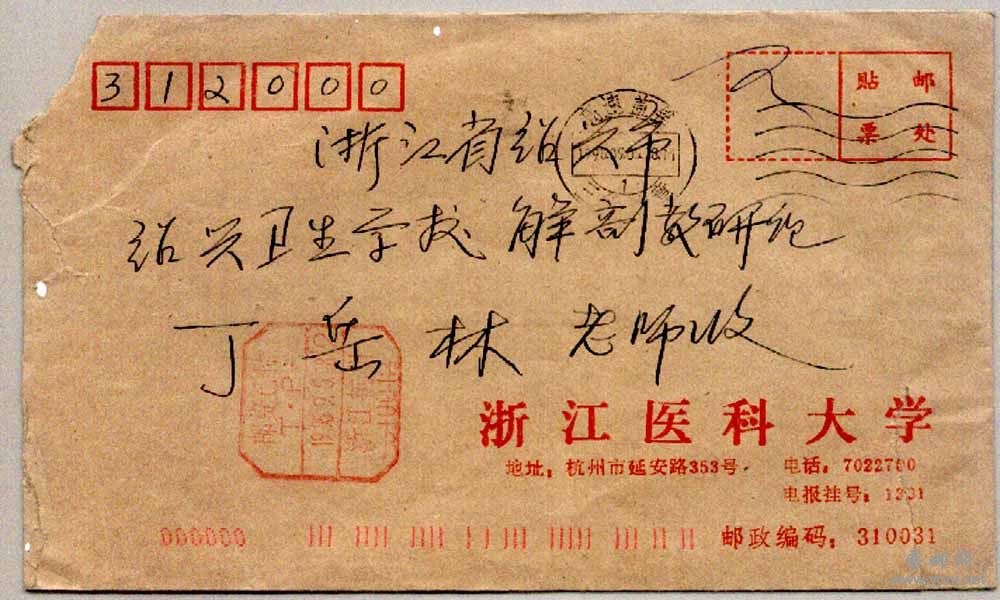 312000
贴 邮
票 处
浙江省绍兴市
绍兴卫生学校 解剖教研组
丁岳林 老师收
浙江医科大学
地址：杭州市延安路353号 电话：7022700
电报挂号：1331
000000
邮政编码：310031